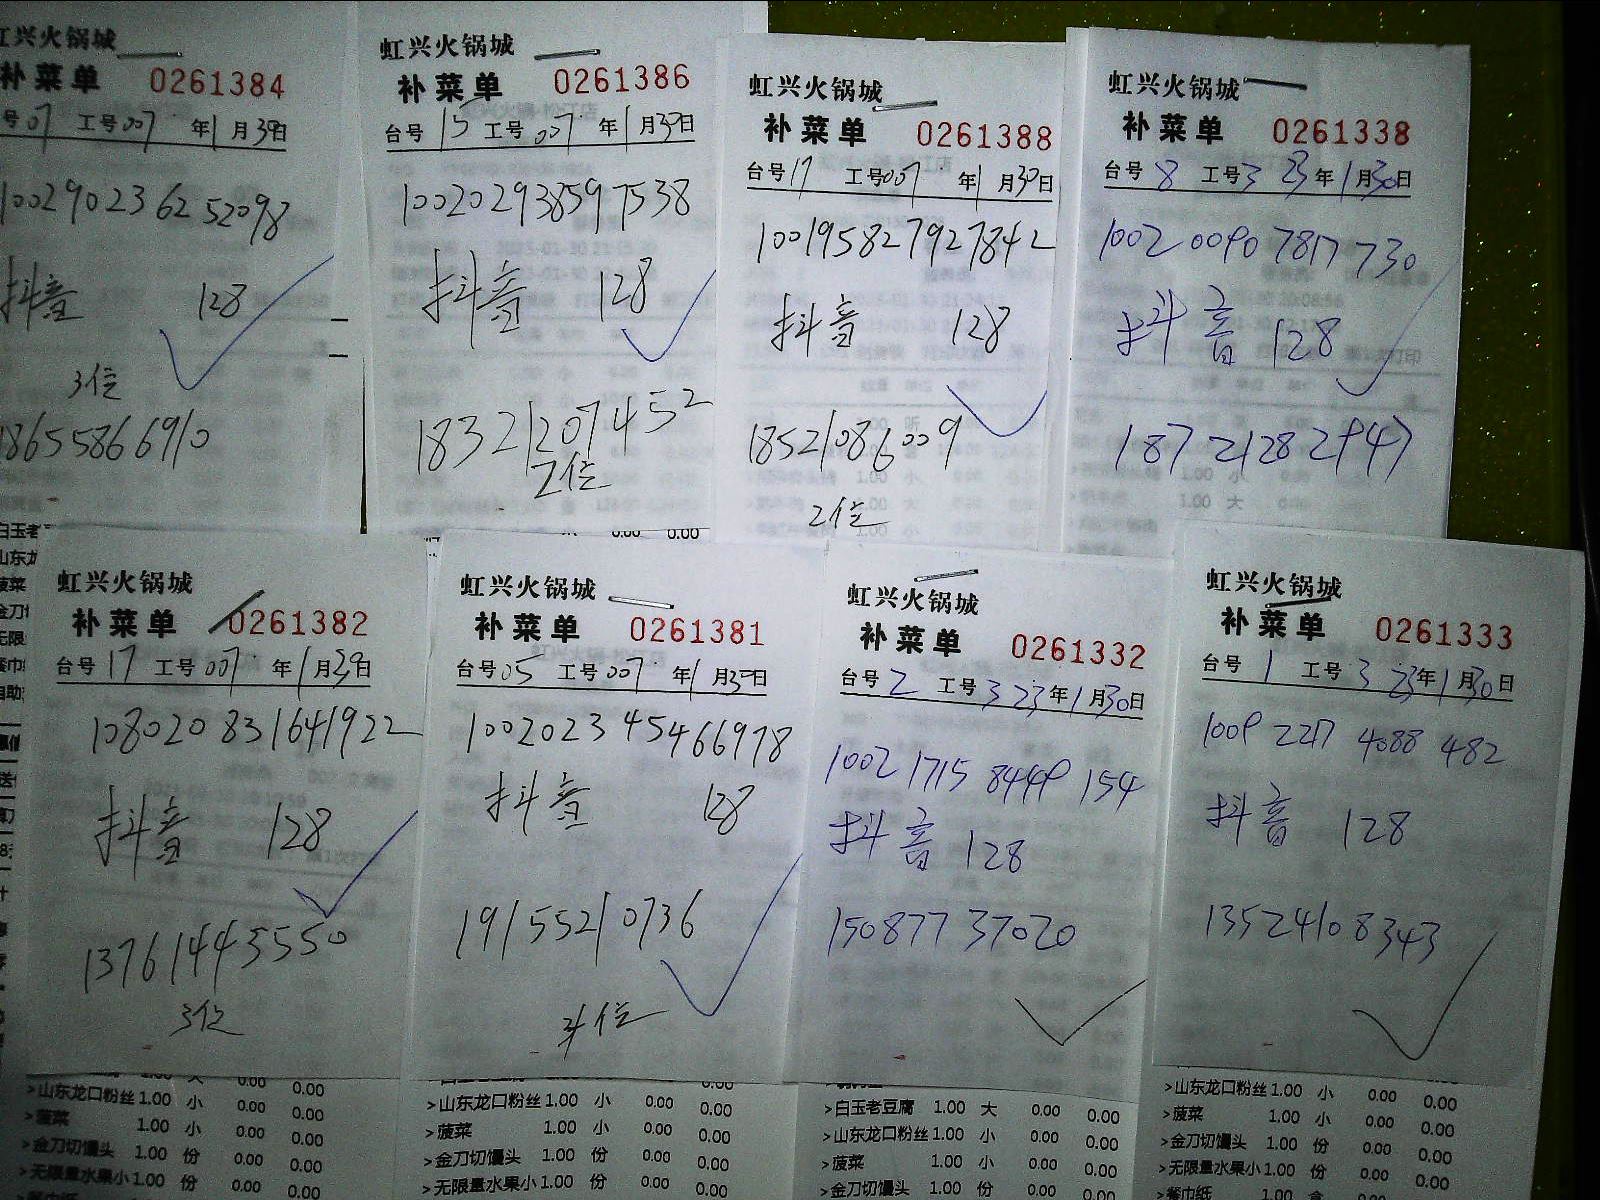 虹兴火锅城
补菜单 0261384
台号 07 工号 007 年 1 月 30 日
1002902362 52098
抖音 128
3位
18655866910
虹兴火锅城
补菜单 0261386
台号 15 工号 007 年 1 月 30 日
100202938597538
抖音 128
18321207452
2位
虹兴火锅城
补菜单 0261388
台号 17 工号 007 年 1 月 30 日
100195827927842
抖音 128
18521086009
2位
虹兴火锅城
补菜单 0261338
台号 8 工号 3 23 年 1 月 30 日
1002 0090 7817 730
抖音 128
18721282947
虹兴火锅城
补菜单 0261382
台号 17 工号 007 年 1 月 29 日
108020831641922
抖音 128
13761443550
3位
虹兴火锅城
补菜单 0261381
台号 05 工号 007 年 1 月 30 日
100202345466978
抖音 128
19155210736
4位
虹兴火锅城
补菜单 0261332
台号 2 工号 3 23 年 1 月 30 日
1002 1715 8449 154
抖音 128
15087737020
虹兴火锅城
补菜单 0261333
台号 1 工号 3 23 年 1 月 30 日
1009 2217 4088 482
抖音 128
13524108343
>山东龙口粉丝 1.00 小 0.00 0.00
>菠菜 1.00 小 0.00 0.00
>金刀切馒头 1.00 份 0.00 0.00
>无限量水果小 1.00 份 0.00 0.00
>山东龙口粉丝 1.00 小 0.00 0.00
>菠菜 1.00 小 0.00 0.00
>金刀切馒头 1.00 份 0.00 0.00
>无限量水果小 1.00 份 0.00 0.00
>白玉老豆腐 1.00 大 0.00 0.00
>山东龙口粉丝 1.00 小 0.00 0.00
>菠菜 1.00 小 0.00 0.00
>金刀切馒头 1.00 份 0.00 0.00
>山东龙口粉丝 1.00 小 0.00 0.00
>菠菜 1.00 小 0.00 0.00
>金刀切馒头 1.00 份 0.00 0.00
>无限量水果小 1.00 份 0.00 0.00
>餐巾纸 1.00 盒 0.00 0.00